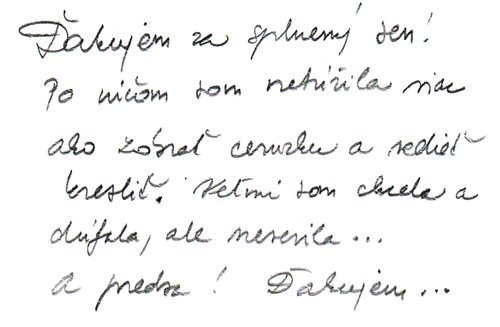 Ďakujem za splnený sen!
Po ničom som netúžila viac
ako zobrať ceruzku a vedieť
kresliť. Veľmi som chcela a
dúfala, ale neverila...
A predsa! Ďakujem...